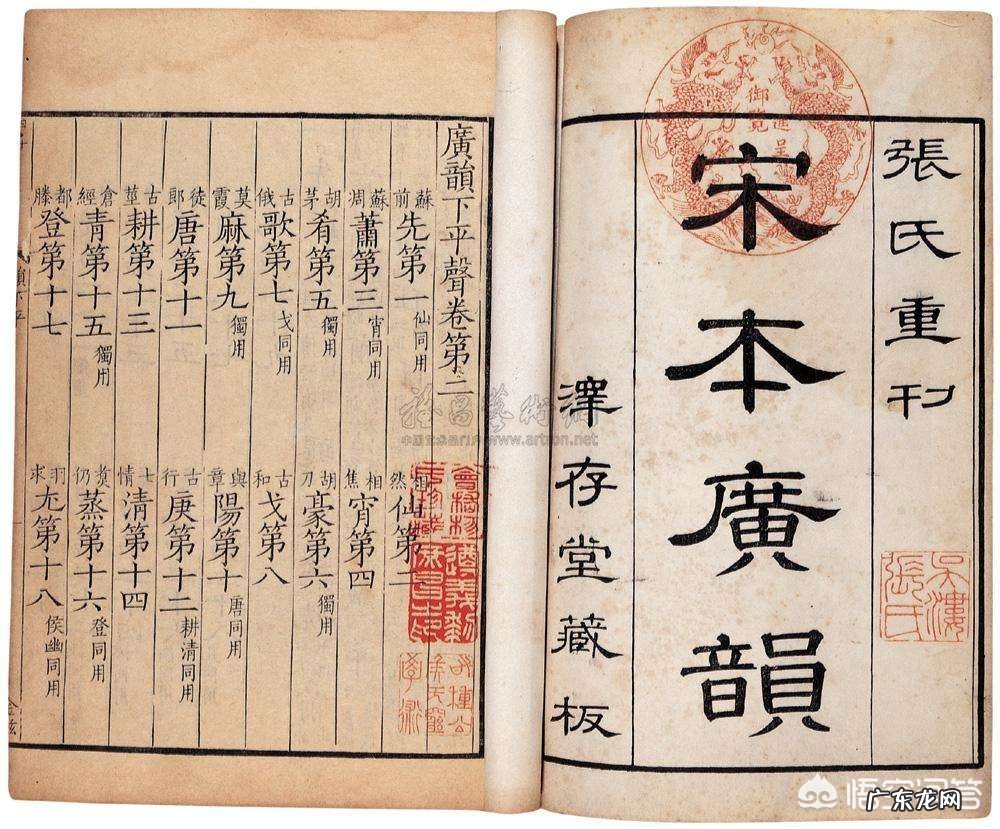 張氏重刊
宋本廣韻
澤存堂藏板
御覽
進呈
張氏
廣韻下平聲卷第二
蘇前先第一仙同用 相然仙第二
蘇周蕭第三宵同用 相焦宵第四
胡茅肴第五獨用 胡刀豪第六獨用
古俄歌第七戈同用 古和戈第八
莫霞麻第九獨用 與章陽第十唐同用
徒郎唐第十一 古行庚第十二耕清同用
古莖耕第十三 七情清第十四
倉經青第十五獨用 煑仍蒸第十六登同用
都滕登第十七 羽求尤第十八侯幽同用
www.artron.net
悟空问答
广东龙网